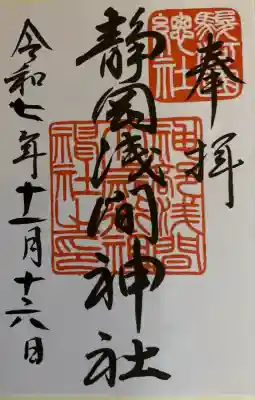 奉拝
駿河國總社
静岡浅間神社
神部浅間
令和七年十一月十六日